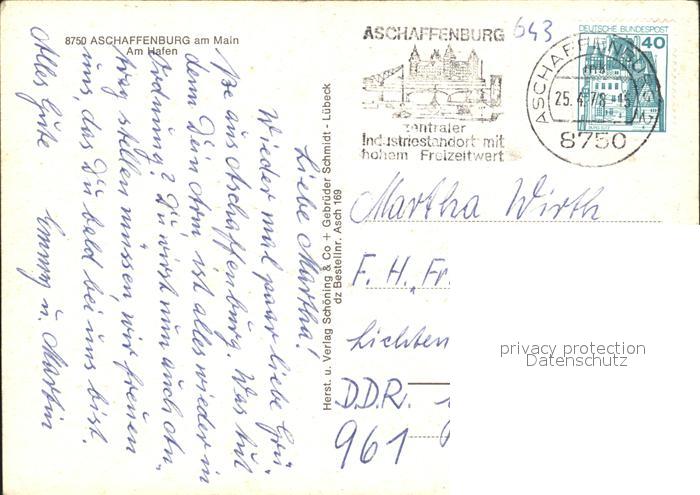 8750 ASCHAFFENBURG am Main
Am Hafen
Liebe Martha!
Wieder mal paar liebe Grü-
ße aus Aschaffenburg. Was tut
denn Dein Arm ist alles wieder in
Ordnung? Du wirst nun auch An-
trag stellen müssen, wir freuen
uns, das Du bald bei uns bist.
Alles Gute Emmy u. Martin
Herst. u. Verlag Schöning & Co + Gebrüder Schmidt - Lübeck
dz Bestellnr. Asch 169
ASCHAFFENBURG
zentraler
Industriestandort mit
hohem Freizeitwert
643
ASCHAFFENBURG
25.4.78
8750
DEUTSCHE BUNDESPOST
40
Martha Wirth
F. H. „Fr
Lichten
D.D.R.
961
privacy protection
Datenschutz